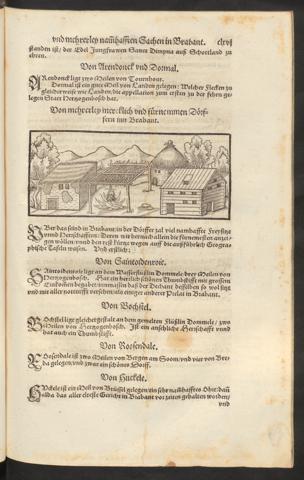 vnd mehrerley namhafften Sachen in Brabant.
standen ist / der Edel Jungfrawen Sanct Dimpna auß Schottland zu
ehren.
Von Arendonck vnd Dormal.
ARendonck ligt zwo Meilen von Tournhout.
Dormal ist ein gute Meil von Landen gelegen: Welcher Flecken zu
gleicher weise wie Landen / die appellation zum ersten zu der sehen ge-
legen Statt Hertzogenbosch hat.
Von mehrerley mercklich vnd fürnemmen Dörf-
fern inn Brabant.
Vber das sind in Brabant / in der Dörffer zal viel namhaffte Freyheit
vnnd Herrschafften: Deren wir hernach allein die fürnemesten anzei-
gen wöllen / vnnd den rest kürtze wegen auff die außführlich Geogra-
phische Tafeln weisen. Vnd erstlich:
Von Saintoidenroie.
SAintoidenroie ligt an dem Wasserflüßlin Dommele / drey Meilen von
Hertzogenbosch. Hat ein herrlich schönes Thumbstifft mit grossem
Einkommen begabet / vnnd ist der Dechant desselben so wol
vnd mit aller notturfft versehen / als einiger anderer Prelat in Brabant.
Von Bochstel.
BOchstel ligt gleicher gestalt an dem gemelten Flüßlin Dommele / zwo
Meilen von Hertzogenbosch. Ist ein ansehliche Herrschafft vnnd
hat auch ein Thumbstifft.
Von Rosendale.
ROsendale ist zwo Meilen von Bergen am Soom / vnd vier von Bre-
da gelegen / vnd zwar ein schönes Dorff.
Von Huckele.
HVckele ist ein Meil von Brüssel gelegen / ein sehr namhafftes Ohrt: dañ
allda das aller elteste Gericht in Brabant vor zeiten gehalten worden /
vnd